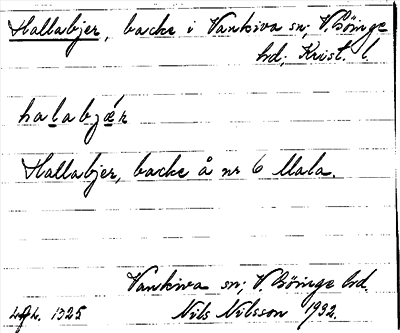 Hallabjer, backe i Vankiva sn; V. Göinge
hd; Krist. l.
halabjǽr
Hallabjer, backe å nr 6 Mala.
Vankiva sn; V. Göinge hd.
1325 Nils Nilsson 1932.